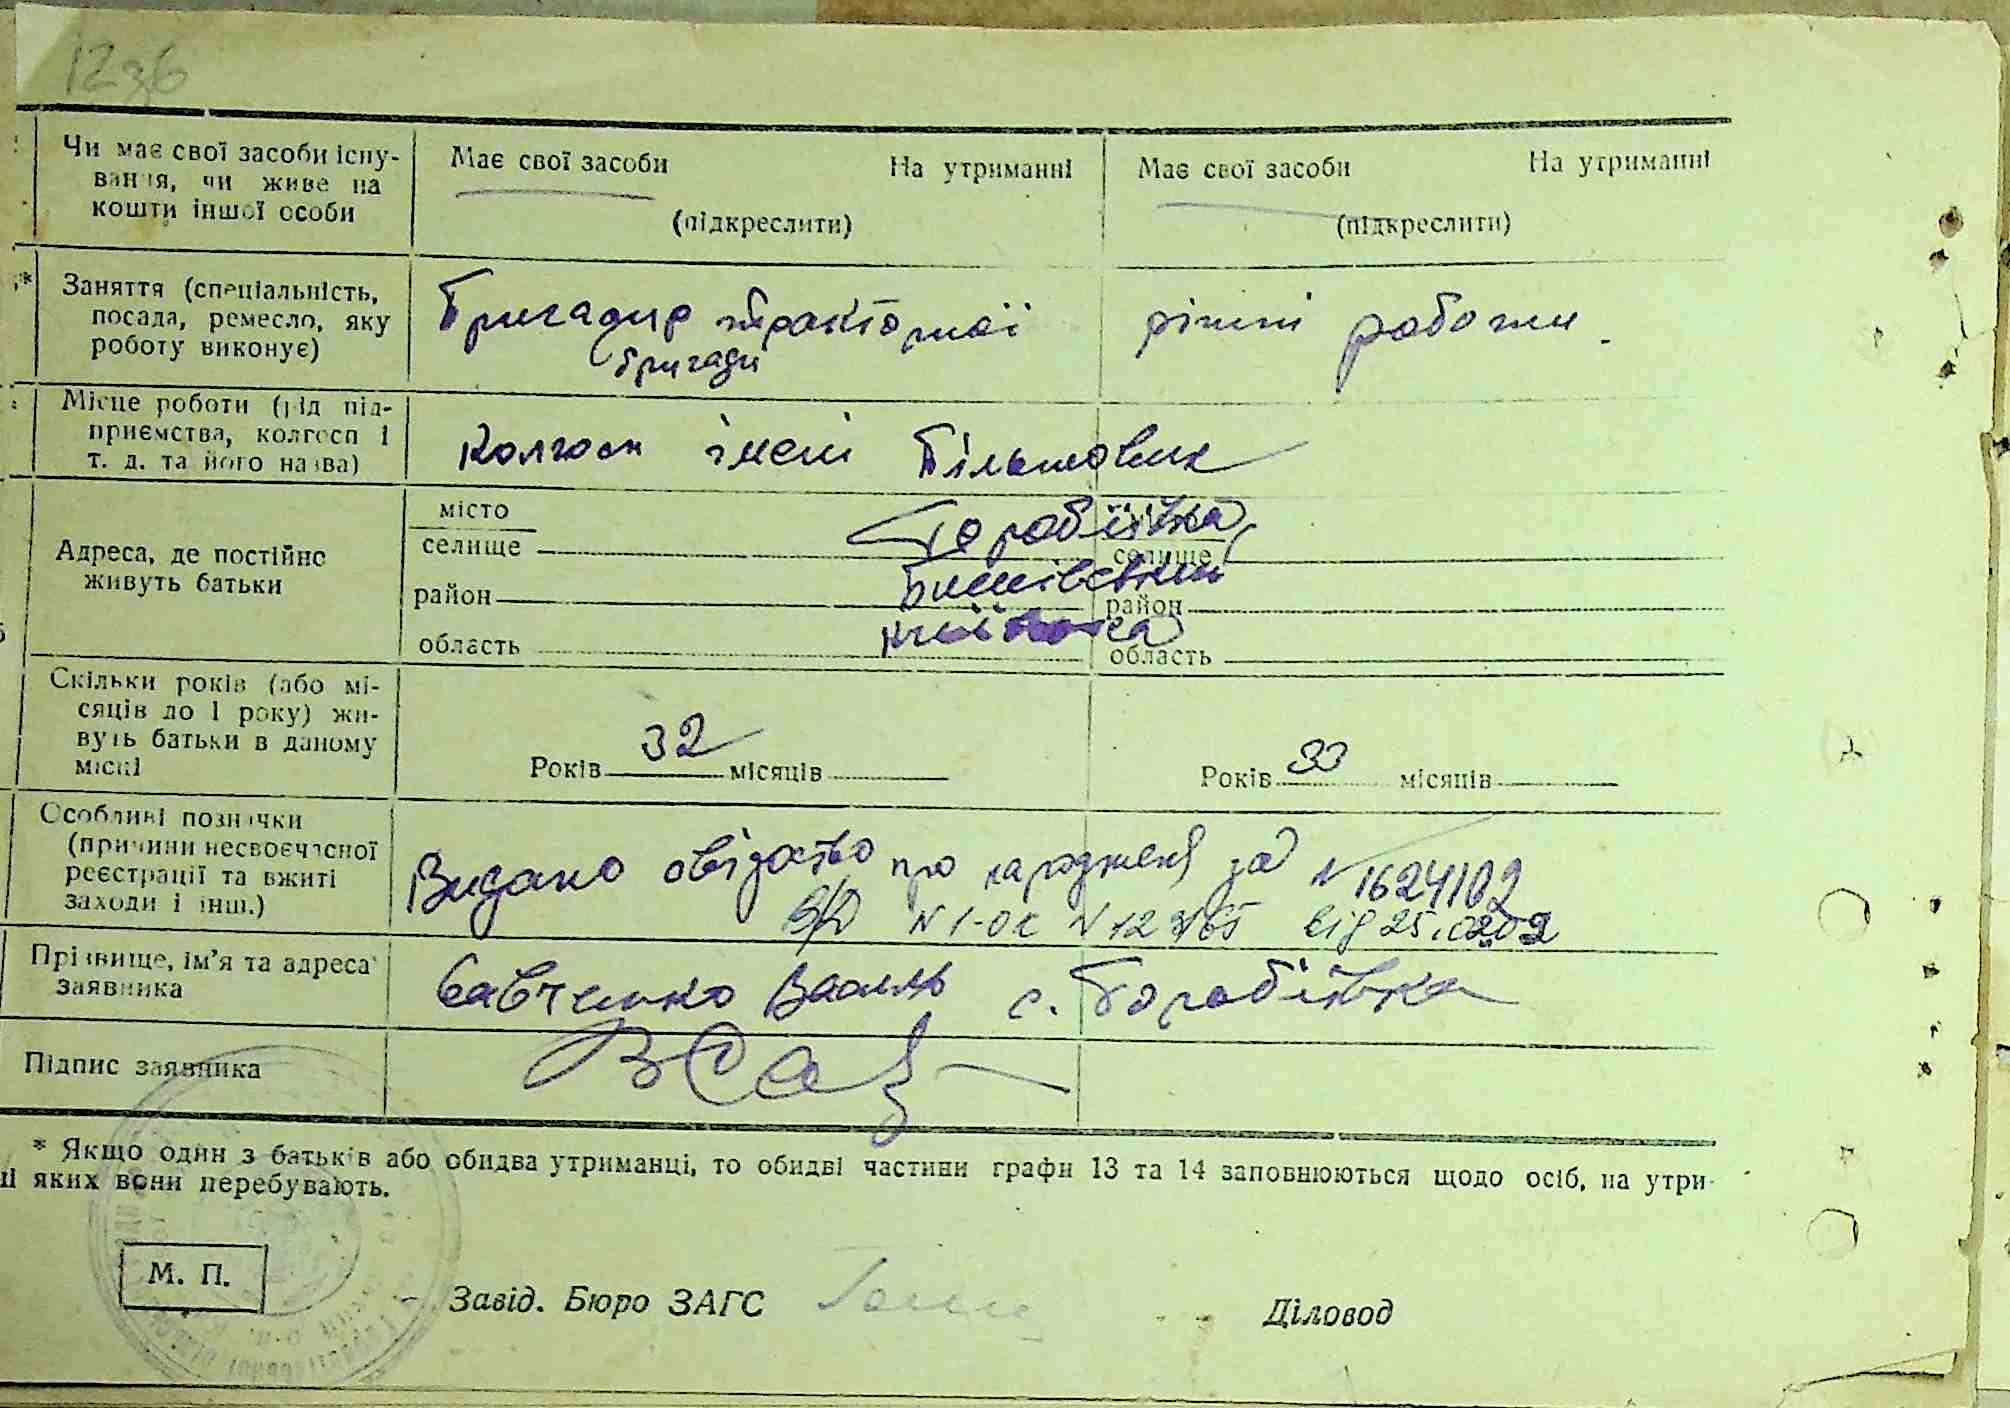 Чи має свої засоби існу-
вання, чи живе на
кошти іншої особи
Має свої засоби На утриманні
(підкреслити)
Має свої засоби На утриманні
(підкреслити)
* Заняття (спеціальність,
посада, ремесло, яку
роботу виконує)
Бригадир тракторної
бригади
різні роботи.
Місце роботи (рід під-
приємства, колгосп і
т. д. та його назва)
Колгосп імені Більшовик
Адреса, де постійно
живуть батьки
місто
селище
район
область
Горобіївка
селище
район
Київська
область
Скільки років (або мі-
сяців до 1 року) жи-
вуть батьки в даному
місці
Років 32 місяців
Років 33 місяців
Особливі позначки
(причини несвоєчасної
реєстрації та вжиті
заходи і інш.)
Видано свідоство про народженя за № 1624102
N 1-0 N 12 від 25.0202
Прізвище, ім'я та адреса
заявника
Савченко Василь с. Горобіївка
Підпис заявника
* Якщо один з батьків або обидва утриманці, то обидві частини графи 13 та 14 заповнюються щодо осіб, на утри-
ні яких вони перебувають.
М. П.
Завід. Бюро ЗАГС
Діловод